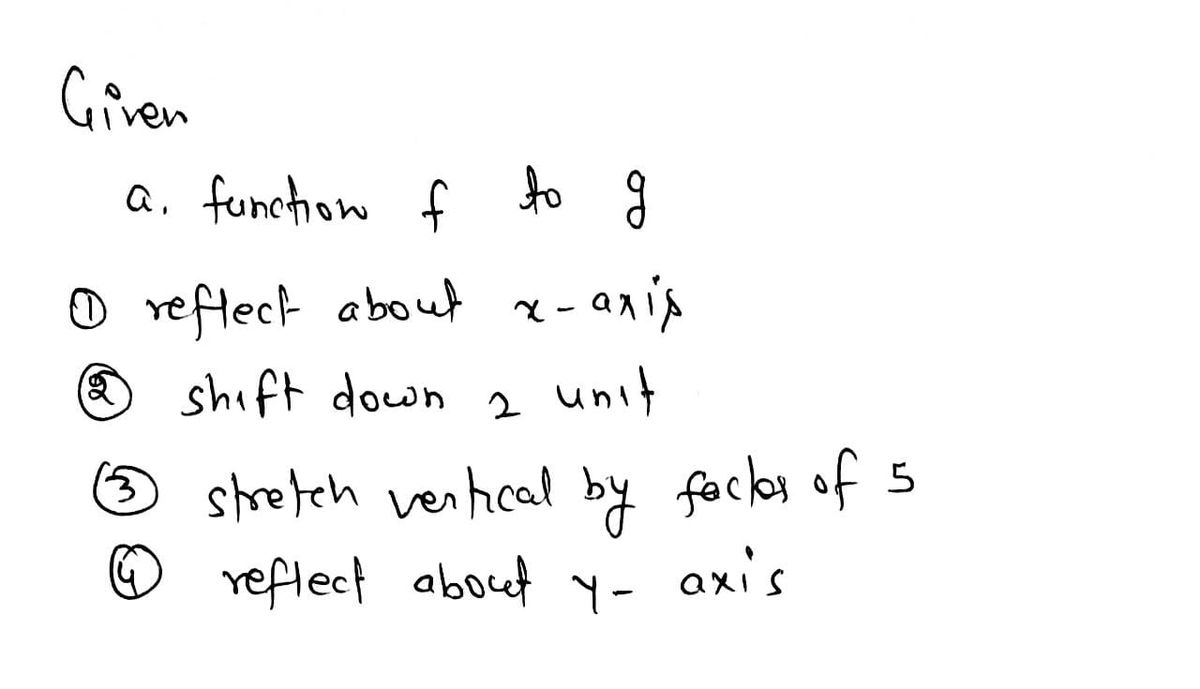 Given
a. function f to g
① reflect about x-axis
② shift down 2 unit
③ stretch vertical by factor of 5
④ reflect about y- axis